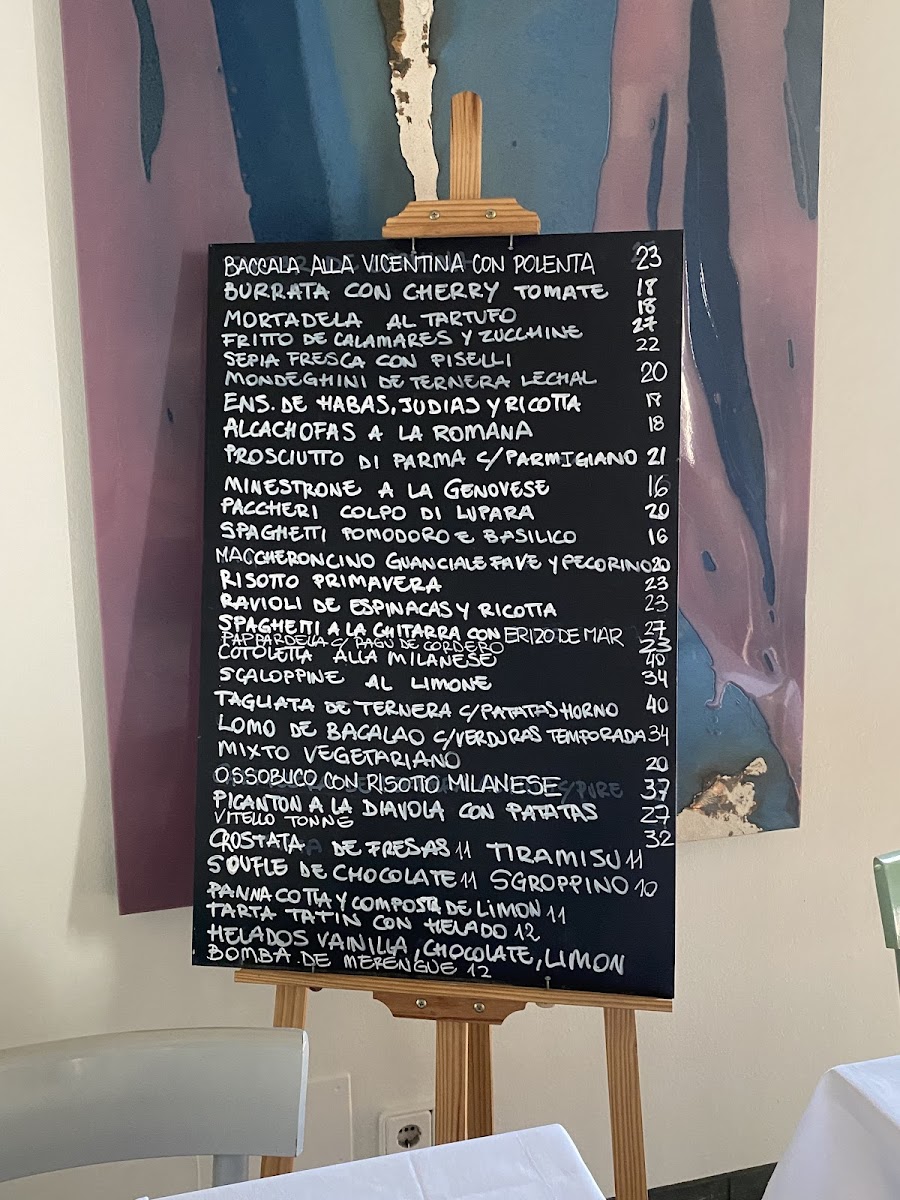 BACCALA ALLA VICENTINA CON POLENTA 23
BURRATA CON CHERRY TOMATE 18
MORTADELA AL TARTUFO 18
FRITTO DE CALAMARES Y ZUCCHINE 27
SEPIA FRESCA CON PISELLI 22
MONDEGHINI DE TERNERA LECHAL 20
ENS. DE HABAS, JUDIAS Y RICOTTA 17
ALCACHOFAS A LA ROMANA 18
PROSCIUTTO DI PARMA C/PARMIGIANO 21
MINESTRONE A LA GENOVESE 16
PACCHERI COLPO DI LUPARA 20
SPAGHETTI POMODORO E BASILICO 16
MACCHERONCINO GUANCIALE FAVE Y PECORINO 20
RISOTTO PRIMAVERA 23
RAVIOLI DE ESPINACAS Y RICOTTA 23
SPAGHETTI A LA CHITARRA CON ERIZO DE MAR 27
PAPPARDELLA C/ RAGU DE CORDERO 23
COTOLETTA ALLA MILANESE 40
SCALOPPINE AL LIMONE 34
TAGLIATA DE TERNERA C/PATATAS HORNO 40
LOMO DE BACALAO C/VERDURAS TEMPORADA 34
MIXTO VEGETARIANO 20
OSSOBUCO CON RISOTTO MILANESE 37
PICANTON A LA DIAVOLA CON PATATAS 27
VITELLO TONNE 32
CROSTATA DE FRESAS 11 TIRAMISU 11
SOUFLE DE CHOCOLATE 11 SGROPPINO 10
PANNA COTTA Y COMPOSTA DE LIMON 11
TARTA TATIN CON HELADO 12
HELADOS VAINILLA, CHOCOLATE, LIMON
BOMBA DE MERENGUE 12